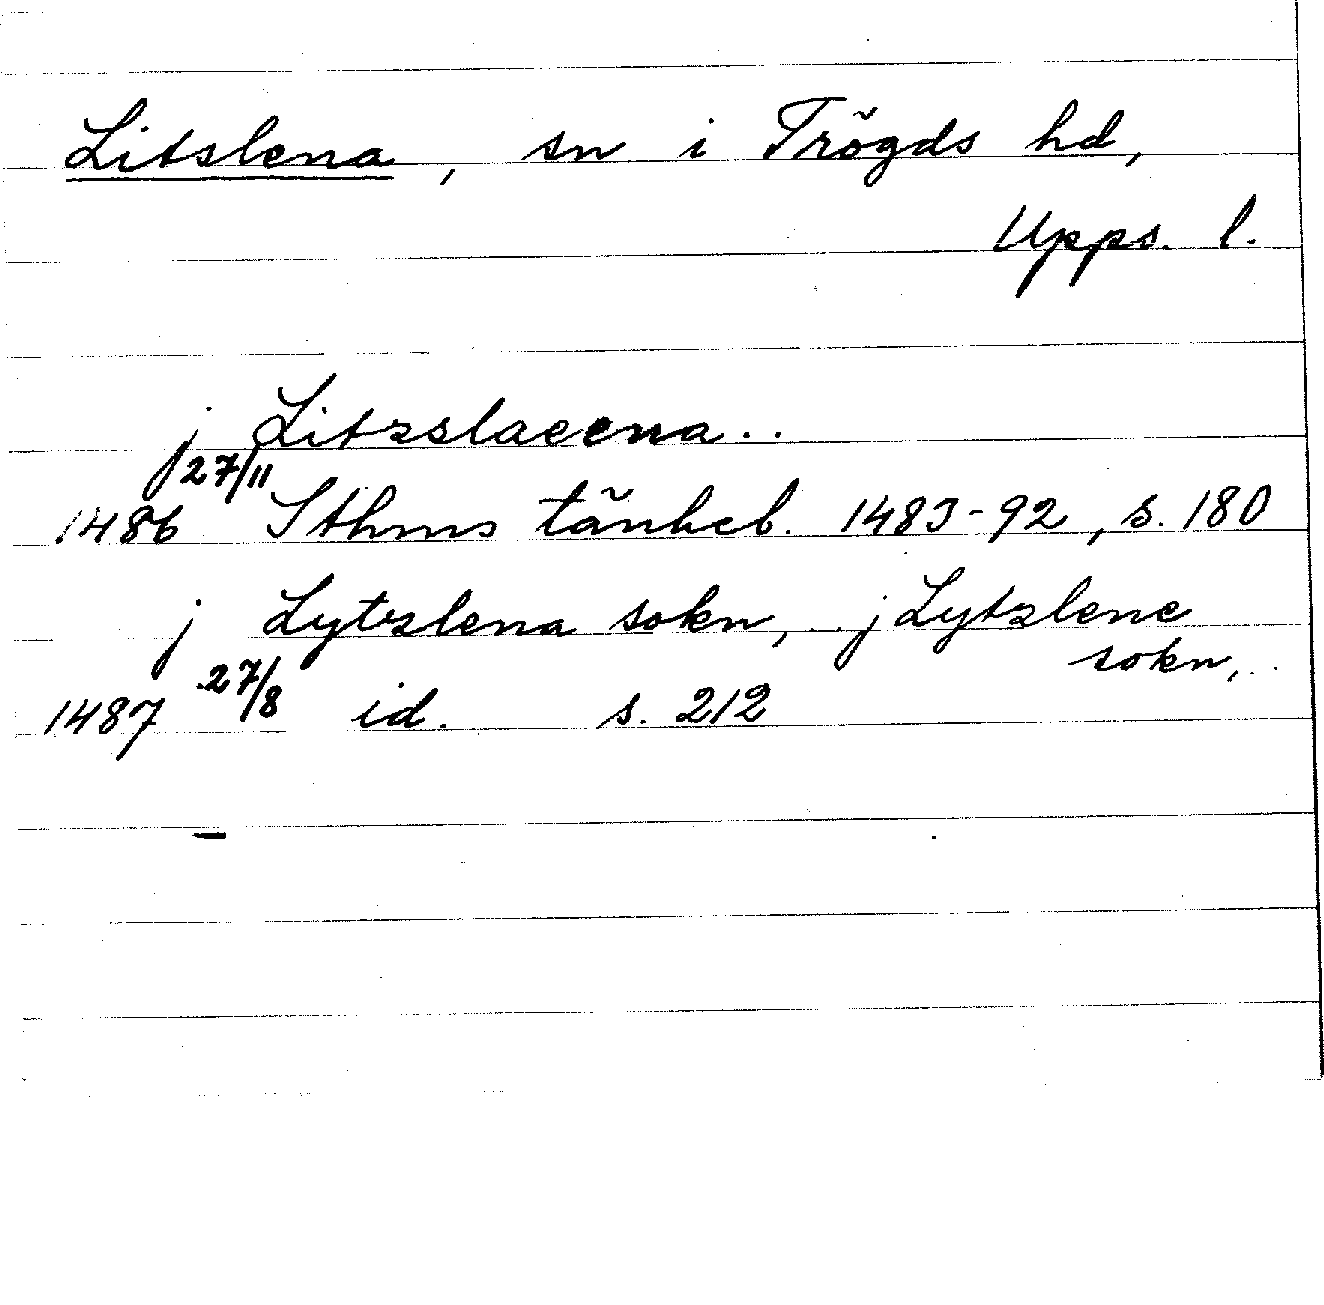 Litslena, sn i Trögds hd,
Upps. l.
j Litzslaeena..
1486 27/11 Sthms tänkeb. 1483-92, s. 180
j Lytzlena sokn, .. j Lytzlene
sokn, ..
1487 27/8 id. s. 212